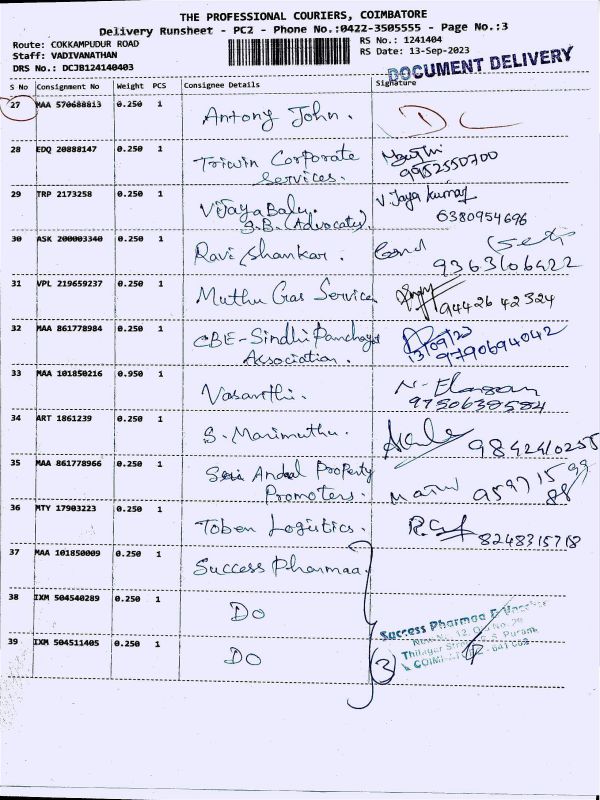 THE PROFESSIONAL COURIERS, COIMBATORE
Delivery Runsheet - PC2 - Phone No.:0422-3505555 - Page No.:3
Route: COKKAMPUDUR ROAD RS No.: 1241404
Staff: VADIVANATHAN RS Date: 13-Sep-2023
DRS No.: DCJB124140403 DOCUMENT DELIVERY
S No Consignment No Weight PCS Consignee Details Signature
27 MAA 570688813 0.250 1 Antony John. DC
28 EDQ 20888147 0.250 1 Triwin Corporate
Services. 9952550700
29 TRP 2173258 0.250 1 VijayaBalu. V. Jaya kumar
S.B. (Advocate) 6380954696
30 ASK 200003340 0.250 1 Ravi Shankar.
9363106422
31 VPL 219659237 0.250 1 Muthu Gas Service 94426 42324
32 MAA 861778984 0.250 1 CBE-Sindhi Panchayat 13/09/23
Association. 9790694042
33 MAA 101850216 0.950 1 Vasanthi. N-Elangan
9750638584
34 ART 1861239 0.250 1 S. Marimuthu. 9842410255
35 MAA 861778966 0.250 1 Sri Andal Property
Promoters. 95971599
88
36 MTY 17903223 0.250 1 Toben Logistics. 8248315718
37 MAA 101850009 0.250 1 Success Pharmaa.
38 IXM 504540289 0.250 1 DO
39 IXM 504511405 0.250 1 DO
3
Success Pharmaa &